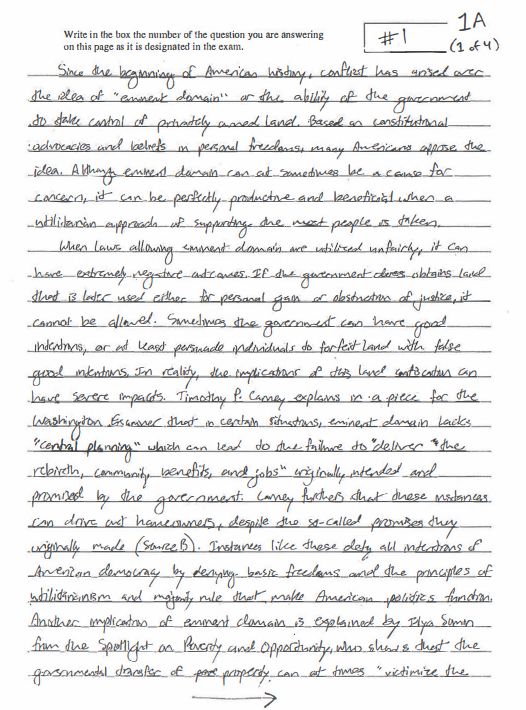 Write in the box the number of the question you are answering
on this page as it is designated in the exam.
#1
1A
(1 of 4)
Since the beginning of American history, conflict has arised over
the idea of "eminent domain" or the ability of the government
to take control of privately owned land. Based on constitutional
advocacies and beliefs in personal freedoms, many Americans oppose the
idea. Although eminent domain can at sometimes be a cause for
concern, it can be perfectly productive and beneficial when a
utilitarian approach of supporting the most people is taken.
When laws allowing eminent domain are utilized unfairly, it can
have extremely negative outcomes. If the government obtains land
that is later used either for personal gain or obstruction of justice, it
cannot be allowed. Sometimes the government can have good
intentions, or at least persuade individuals to forfeit land with false
good intentions. In reality, the implications of this land confiscation can
have severe impacts. Timothy P. Carney explains in a piece for the
Washington Examiner that in certain situations, eminent domain lacks
"central planning" which can lead to the failure to "deliver the
rebirth, community benefits, and jobs" originally intended and
promised by the government. Carney furthers that these instances
can drive out homeowners, despite the so-called promises they
originally made (Source B). Instances like these defy all intentions of
American democracy by denying basic freedoms and the principles of
utilitarianism and majority rule that make American politics function.
Another implication of eminent domain is explained by Ilya Somin
from the Spotlight on Poverty and Opportunity, who shows that the
governmental transfer of property can at times "victimize the